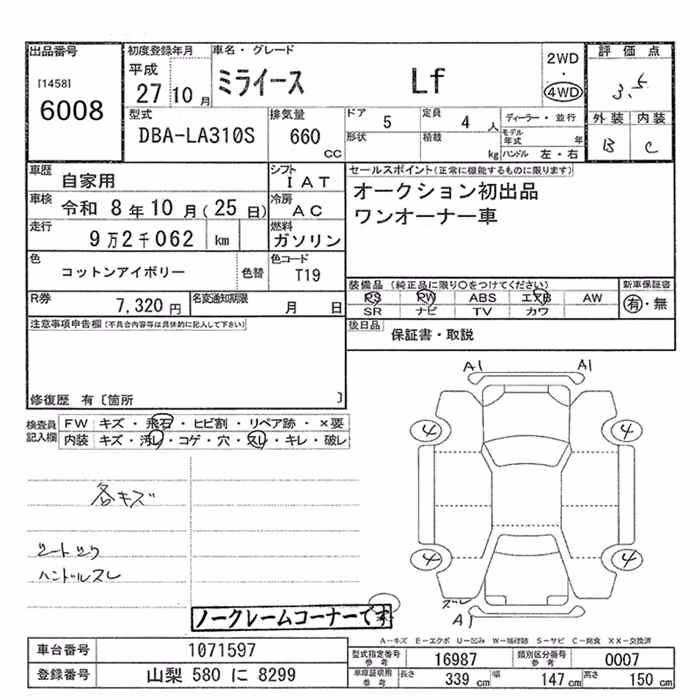 出品番号 初度登録年月 車名・グレード 2WD 評価点
[1458] 平成 ミライース Lf ・ 3.5
6008 27 10月 4WD
型式 排気量 ドア 5 定員 4人 ディーラー・並行 外装 内装
DBA-LA310S 660 CC 形状 積載 kg モデル年式 年 B C
ハンドル 左・右
車歴 自家用 シフト IAT セールスポイント(正常に機能するものに限ります)
車検 令和 8年10月(25日) 冷房 AC オークション初出品
走行 9万2千062 km 燃料 ガソリン ワンオーナー車
色 コットンアイボリー 色替 色コード T19
装備品 (純正品に限り○をつけてください) 新車保証書
R券 7,320円 名変通知期限 月 日 PS PW ABS エアB AW 有・無
SR ナビ TV カワ
注意事項申告欄(不具合内容等は具体的に記入して下さい) 後日品 保証書・取説
修復歴 有〔箇所 〕
検査員記入欄 FW キズ・飛石・ヒビ割・リペア跡・×要
内装 キズ・汚レ・コゲ・穴・スレ・キレ・破レ
A1 A1
4 4
各キズ
シートシワ
ハンドルスレ
4 4
ズレ
A1
ノークレームコーナーです
A-キズ E-エクボ U-凹み W-補修跡 S-サビ C-腐食 XX-交換済
車台番号 1071597 型式指定番号 参考 16987 類別区分番号 参考 0007
登録番号 山梨 580 に 8299 車庫証明用 参考 長さ 339cm 幅 147cm 高さ 150cm